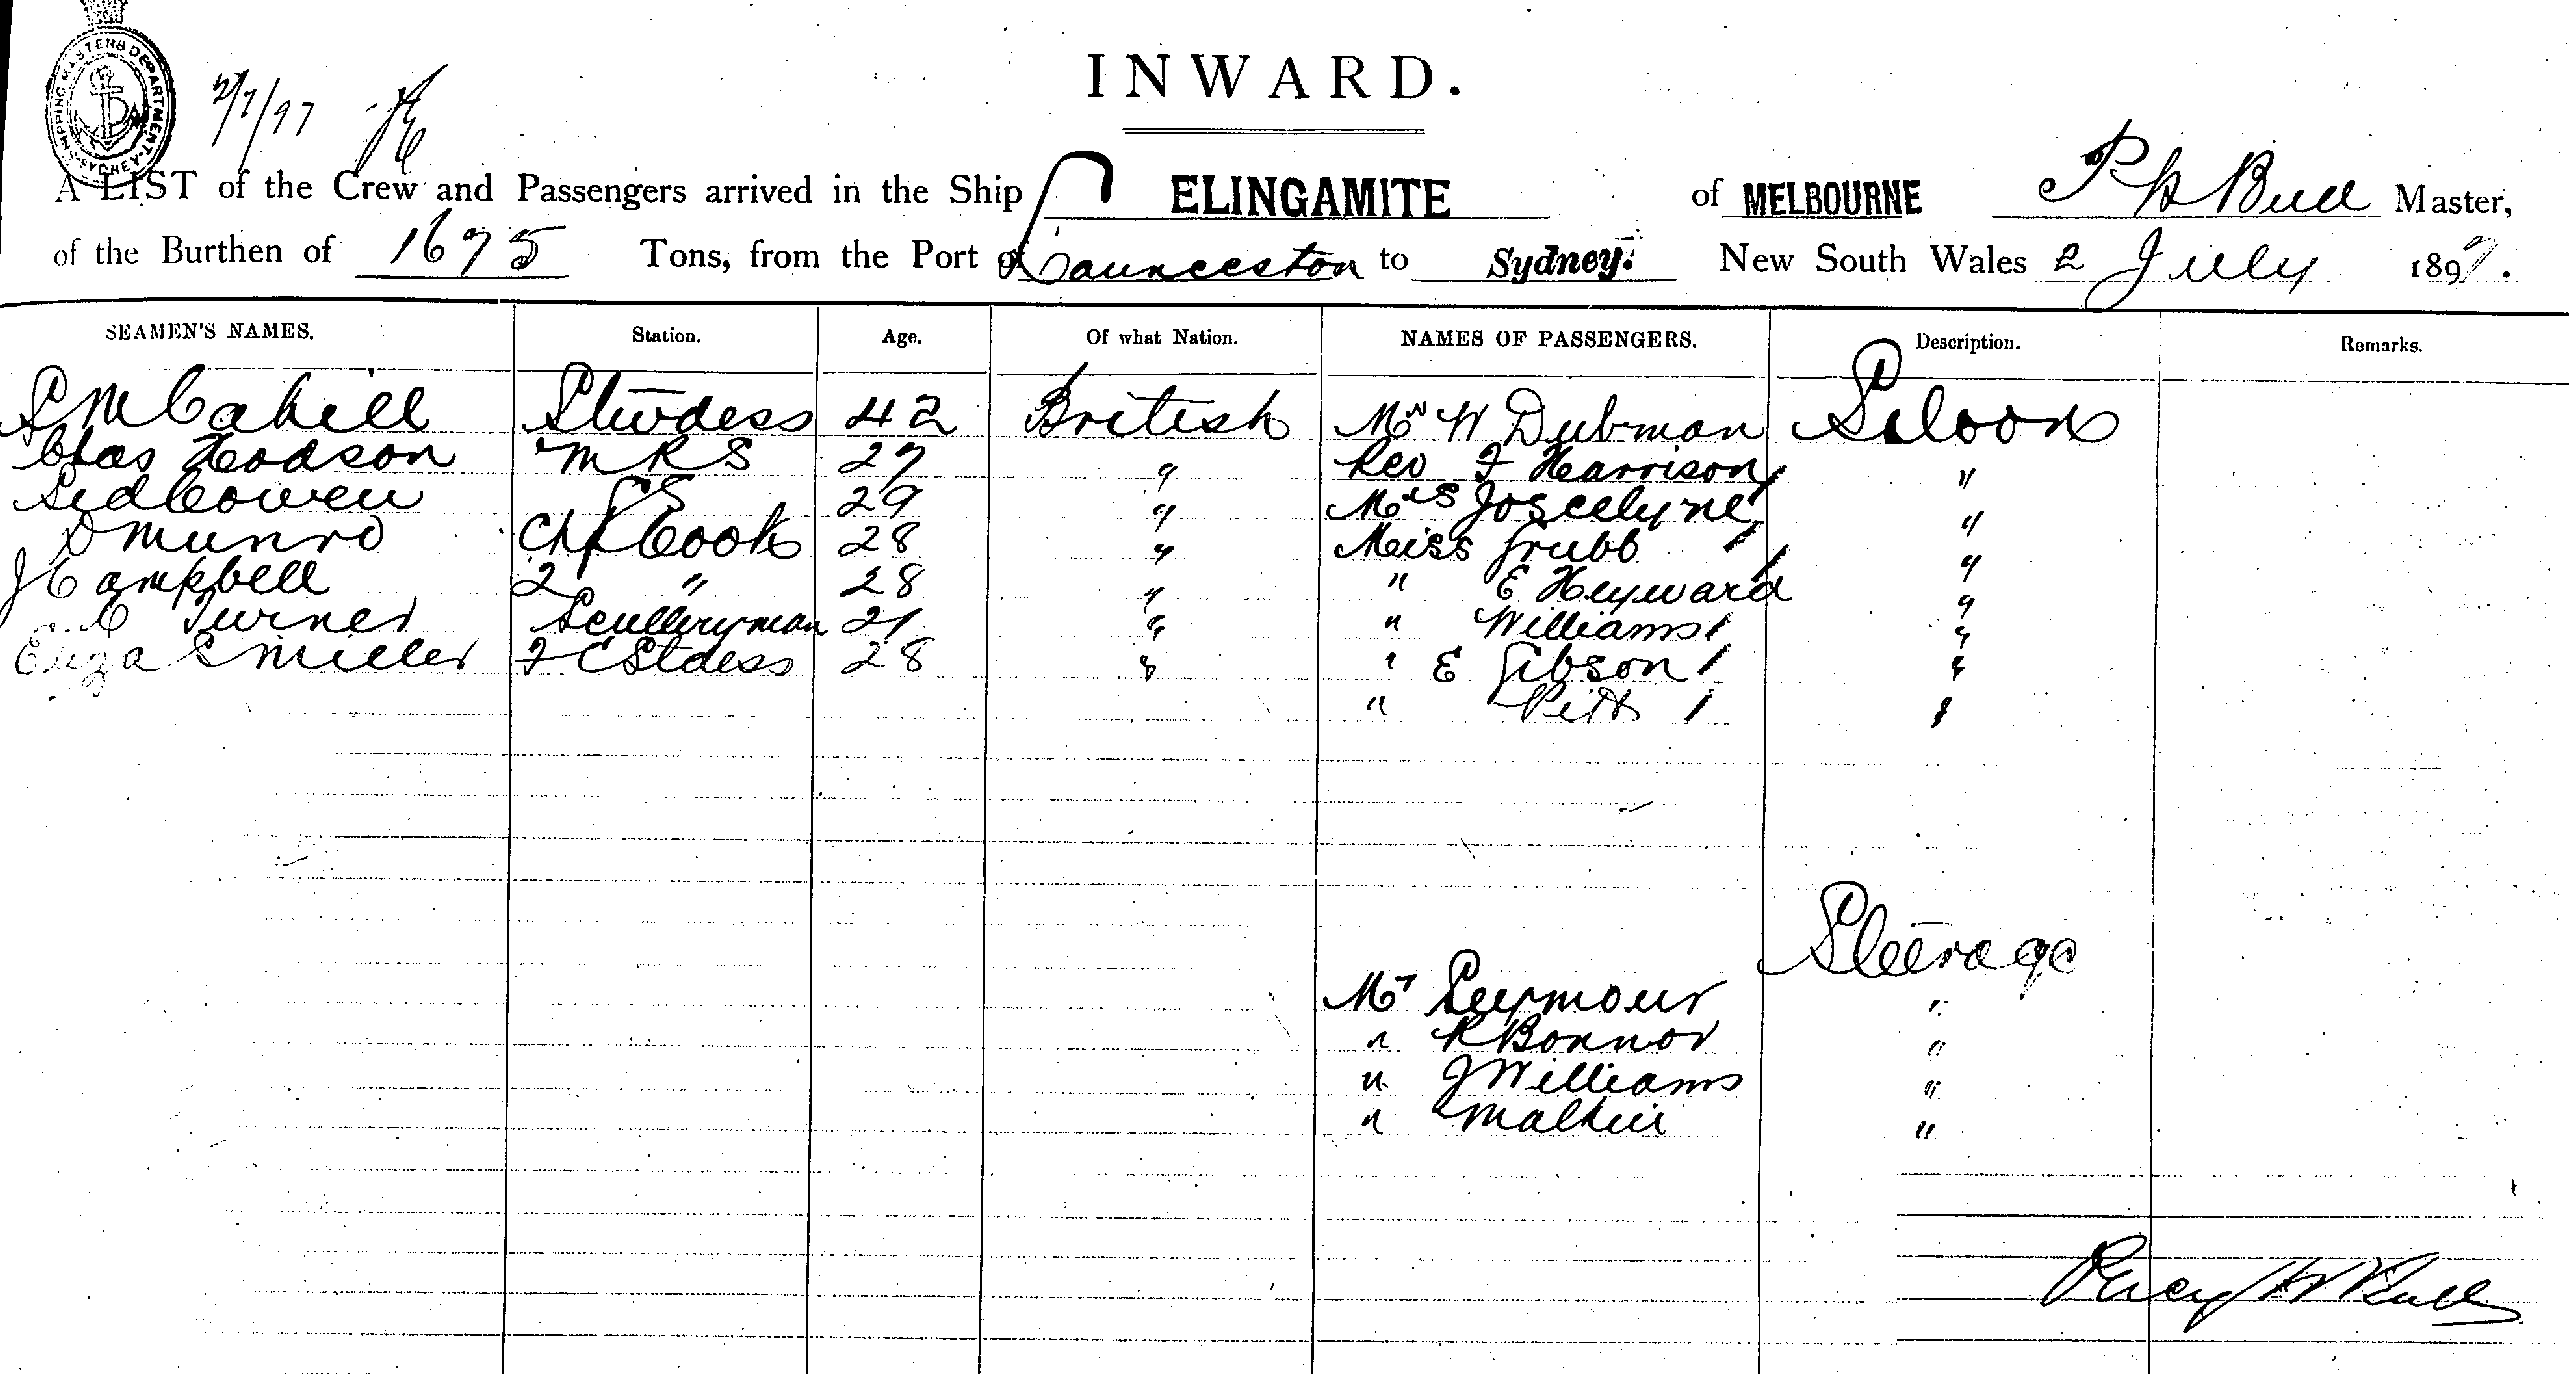 SHIPPING MASTERS DEPARTMENT SYDNEY
2/7/97
INWARD.
A LIST of the Crew and Passengers arrived in the Ship ELINGAMITE of MELBOURNE P H Bull Master,
of the Burthen of 1675 Tons, from the Port of Launceston to Sydney. New South Wales 2 July 1897.
SEAMEN'S NAMES. Station. Age. Of what Nation. NAMES OF PASSENGERS. Description. Remarks.
S McCahill Stwdess 42 British Mr W Dubman Saloon
Chas Hodson M R S 27 " Rev F Harrison "
Sid Cowen 29 " Mrs Joscelyne "
D Munro Chf Cook 28 " Miss Grubb "
J Campbell 2 " 28 " " E Heyward "
C Turner Sculleryman 21 " " Williams "
Eliza S Miller F C Stdess 28 " " E Gibson "
" Pitt "
Steerage
Mr Seymour "
" R Bonnor "
" J Williams "
" "
Percy H Bull